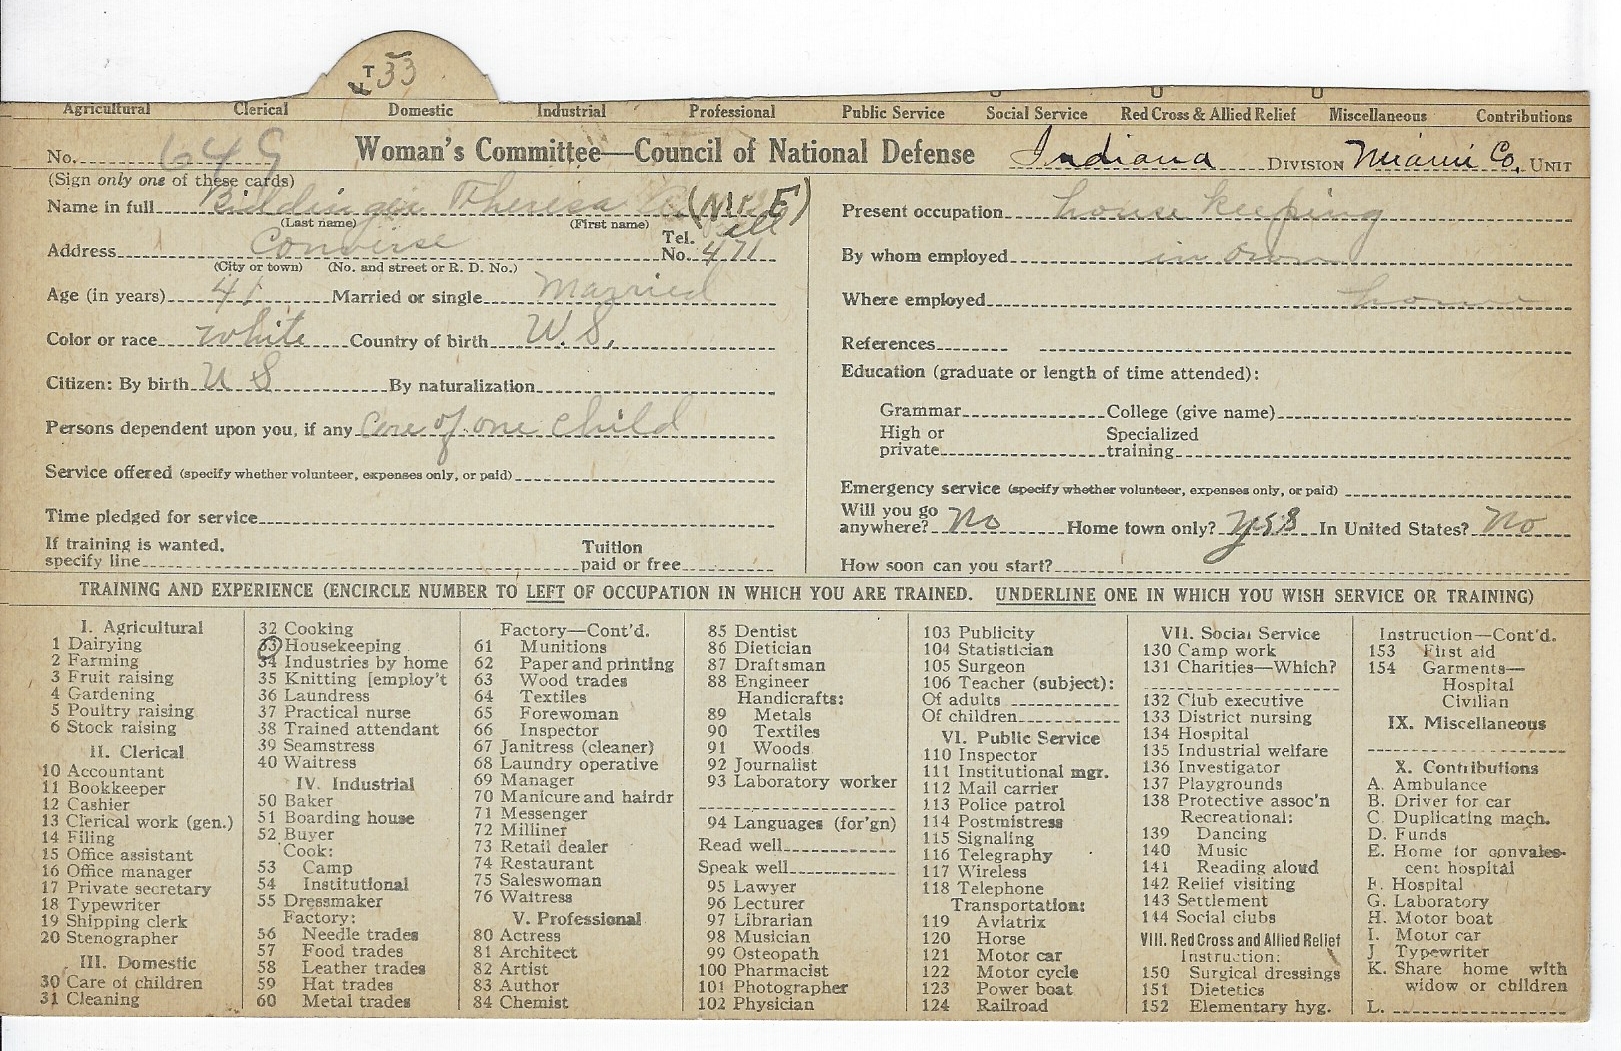 T 33
Agricultural Clerical Domestic Industrial Professional Public Service Social Service Red Cross & Allied Relief Miscellaneous Contributions
No. 649 Woman's Committee—Council of National Defense Indiana DIVISION Miami Co. UNIT
(Sign only one of these cards)
Name in full Theresa (Mrs E)
(Last name) (First name)
Address Converse Tel. No. 471
(City or town) (No. and street or R. D. No.)
Age (in years) 41 Married or single Married
Color or race white Country of birth U. S.
Citizen: By birth U S By naturalization
Persons dependent upon you, if any Care of one child
Service offered (specify whether volunteer, expenses only, or paid)
Time pledged for service
If training is wanted, specify line Tuition paid or free
Present occupation house keeping
By whom employed in own
Where employed home
References
Education (graduate or length of time attended):
Grammar College (give name)
High or private Specialized training
Emergency service (specify whether volunteer, expenses only, or paid)
Will you go anywhere? No Home town only? yes In United States? No
How soon can you start?
TRAINING AND EXPERIENCE (ENCIRCLE NUMBER TO LEFT OF OCCUPATION IN WHICH YOU ARE TRAINED. UNDERLINE ONE IN WHICH YOU WISH SERVICE OR TRAINING)
I. Agricultural
1 Dairying
2 Farming
3 Fruit raising
4 Gardening
5 Poultry raising
6 Stock raising
II. Clerical
10 Accountant
11 Bookkeeper
12 Cashier
13 Clerical work (gen.)
14 Filing
15 Office assistant
16 Office manager
17 Private secretary
18 Typewriter
19 Shipping clerk
20 Stenographer
III. Domestic
30 Care of children
31 Cleaning
32 Cooking
33 Housekeeping
34 Industries by home
35 Knitting [employ't
36 Laundress
37 Practical nurse
38 Trained attendant
39 Seamstress
40 Waitress
IV. Industrial
50 Baker
51 Boarding house
52 Buyer
Cook:
53 Camp
54 Institutional
55 Dressmaker
Factory:
56 Needle trades
57 Food trades
58 Leather trades
59 Hat trades
60 Metal trades
Factory—Cont'd.
61 Munitions
62 Paper and printing
63 Wood trades
64 Textiles
65 Forewoman
66 Inspector
67 Janitress (cleaner)
68 Laundry operative
69 Manager
70 Manicure and hairdr
71 Messenger
72 Milliner
73 Retail dealer
74 Restaurant
75 Saleswoman
76 Waitress
V. Professional
80 Actress
81 Architect
82 Artist
83 Author
84 Chemist
85 Dentist
86 Dietician
87 Draftsman
88 Engineer
Handicrafts:
89 Metals
90 Textiles
91 Woods
92 Journalist
93 Laboratory worker
94 Languages (for'gn)
Read well
Speak well
95 Lawyer
96 Lecturer
97 Librarian
98 Musician
99 Osteopath
100 Pharmacist
101 Photographer
102 Physician
103 Publicity
104 Statistician
105 Surgeon
106 Teacher (subject):
Of adults
Of children
VI. Public Service
110 Inspector
111 Institutional mgr.
112 Mail carrier
113 Police patrol
114 Postmistress
115 Signaling
116 Telegraphy
117 Wireless
118 Telephone
Transportation:
119 Aviatrix
120 Horse
121 Motor car
122 Motor cycle
123 Power boat
124 Railroad
VII. Social Service
130 Camp work
131 Charities—Which?
132 Club executive
133 District nursing
134 Hospital
135 Industrial welfare
136 Investigator
137 Playgrounds
138 Protective assoc'n
Recreational:
139 Dancing
140 Music
141 Reading aloud
142 Relief visiting
143 Settlement
144 Social clubs
VIII. Red Cross and Allied Relief
Instruction:
150 Surgical dressings
151 Dietetics
152 Elementary hyg.
Instruction—Cont'd.
153 First aid
154 Garments—
Hospital
Civilian
IX. Miscellaneous
X. Contributions
A. Ambulance
B. Driver for car
C. Duplicating mach.
D. Funds
E. Home for convales-
cent hospital
F. Hospital
G. Laboratory
H. Motor boat
I. Motor car
J. Typewriter
K. Share home with
widow or children
L.